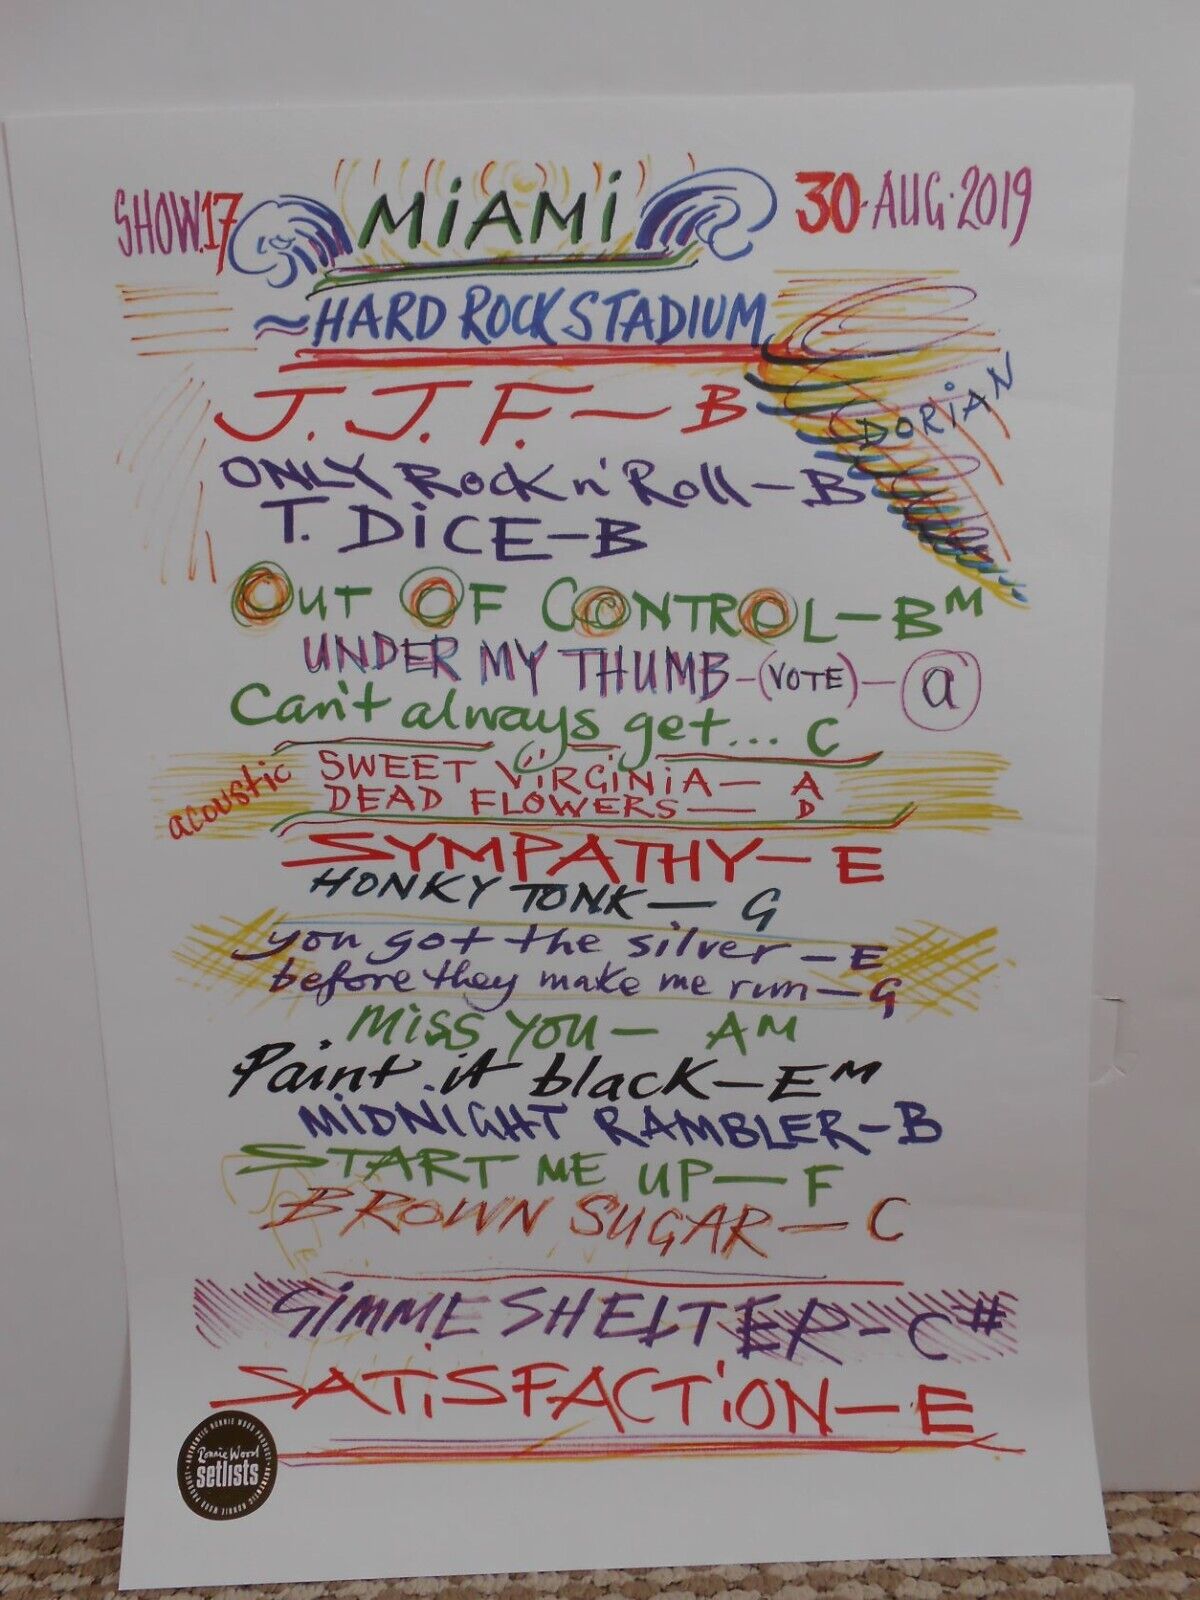 SHOW.17 MiAMi 30·AUG·2019
~HARD ROCK STADIUM
DORiAN
J. J. F. ~ B
ONLY Rock n' Roll - B
T. DiCE - B
OUT OF CONTROL - BM
UNDER MY THUMB - (VOTE) - a
Can't always get... C
acoustic
SWEET ViRGiNiA - A
DEAD FLOWERS - D
SYMPATHY - E
HONKY TONK - G
you got the silver - E
before they make me run - G
MiSS YOU - AM
Paint it black - EM
MiDNIGHT RAMBLER - B
START ME UP - F
BROWN SUGAR - C
GiMME SHELTER - C#
SATiSFACTiON - E
AUTHENTIC RONNIE WOOD PRODUCT · AUTHENTIC RONNIE WOOD PRODUCT ·
Ronnie Wood
setlists